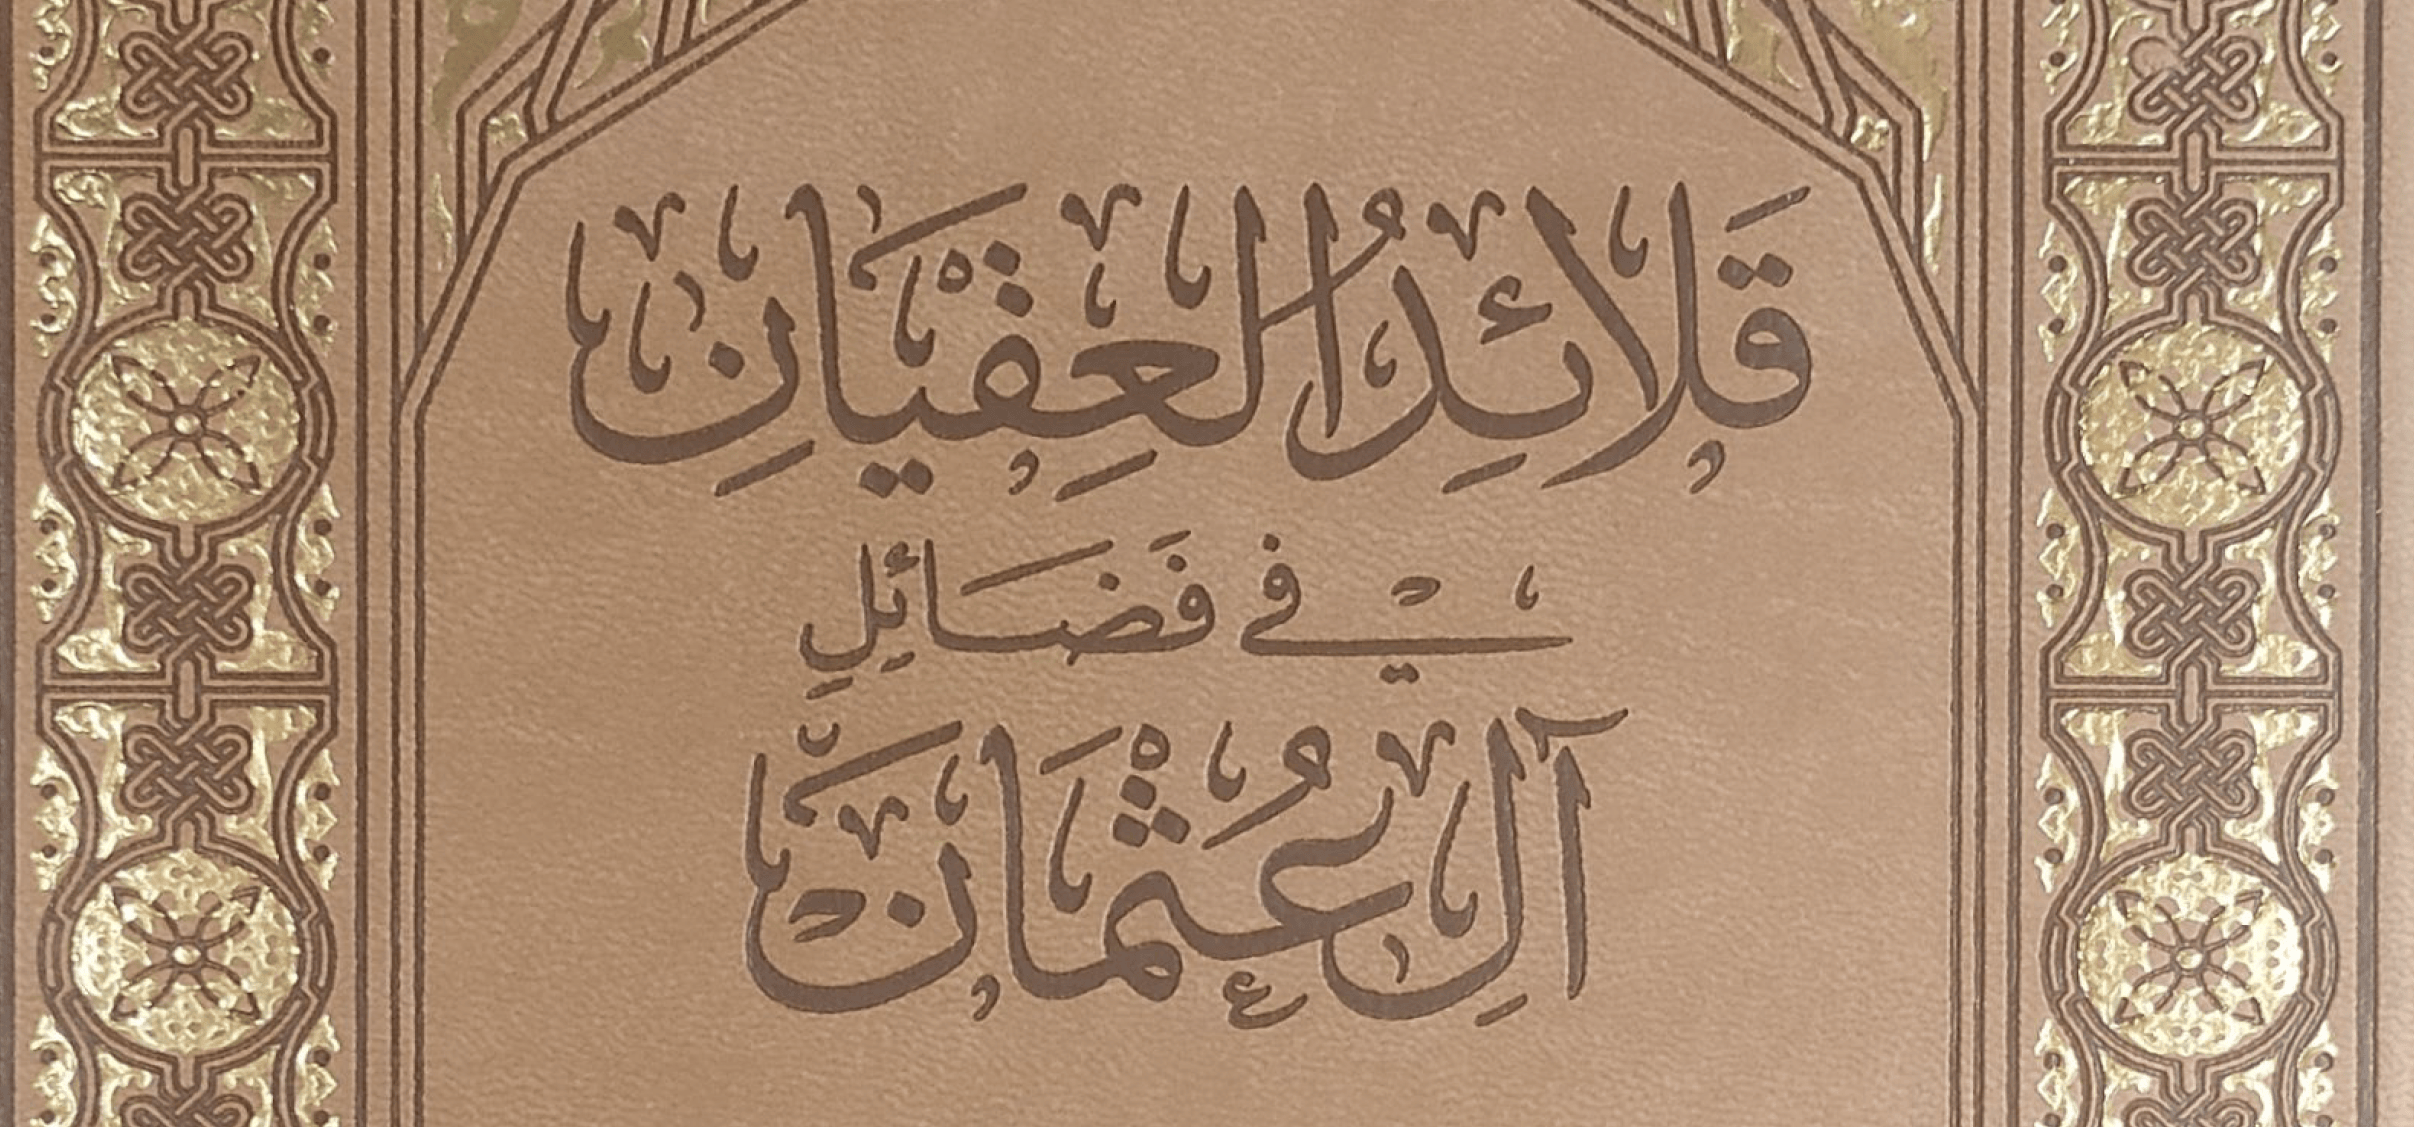 قَلَائِدُ العِقْيَانِ
فِي فَضَائِلِ
آلِ عُثْمَانَ